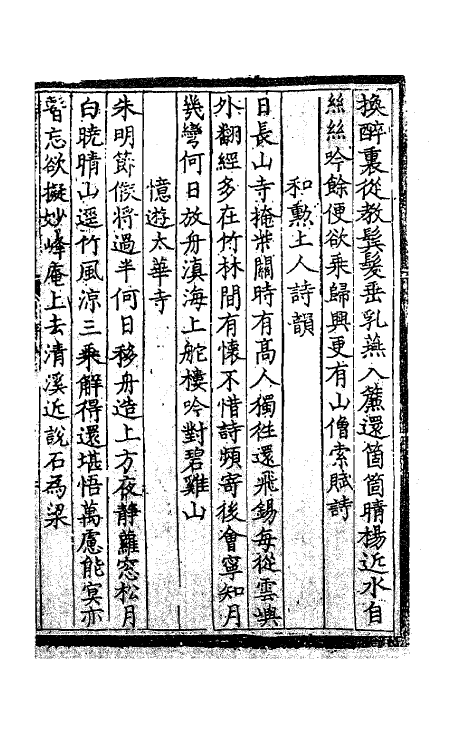 換醉裏從教鬂髮垂乳燕入簾還箇箇晴楊近水自
絲絲吟餘便欲乘歸興更有山僧索賦詩
和勲上人詩韻
日長山寺掩柴關時有高人獨徃還飛錫每從雲嶼
外翻經多在竹林間有懷不惜詩頻寄後會寧知月
幾彎何日放舟滇海上舵樓吟對碧雞山
憶遊太華寺
朱明節候將過半何日移舟造上方夜靜蘿窓松月
白曉晴山逕竹風涼三乘解得還堪悟萬慮能冥亦
暫忘欲擬妙峰庵上去清溪近說石爲梁